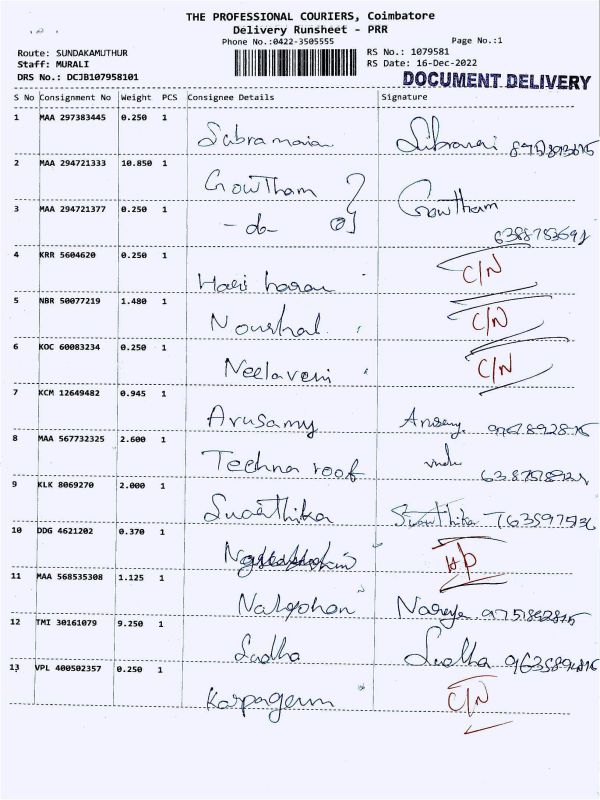 THE PROFESSIONAL COURIERS, Coimbatore
Delivery Runsheet - PRR
Phone No.:0422-3505555
Page No.:1
Route: SUNDAKAMUTHUR
RS No.: 1079581
Staff: MURALI
RS Date: 16-Dec-2022
DRS No.: DCJB107958101
DOCUMENT DELIVERY
S No Consignment No Weight PCS Consignee Details Signature
1 MAA 297383445 0.250 1
Subramaian
2 MAA 294721333 10.850 1
Gowtham
3 MAA 294721377 0.250 1
Gowtham
- do -
4 KRR 5604620 0.250 1
Hari haran C/N
5 NBR 50077219 1.480 1
Noushal C/N
6 KOC 60083234 0.250 1
Neelaveni C/N
7 KCM 12649482 0.945 1
Arusamy
8 MAA 567732325 2.600 1
Techna roof
9 KLK 8069270 2.000 1
Swarthika
10 DDG 4621202 0.370 1
11 MAA 568535308 1.125 1
12 TMI 30161079 9.250 1
Sudha Sudha
13 VPL 400502357 0.250 1
Karpagam C/N